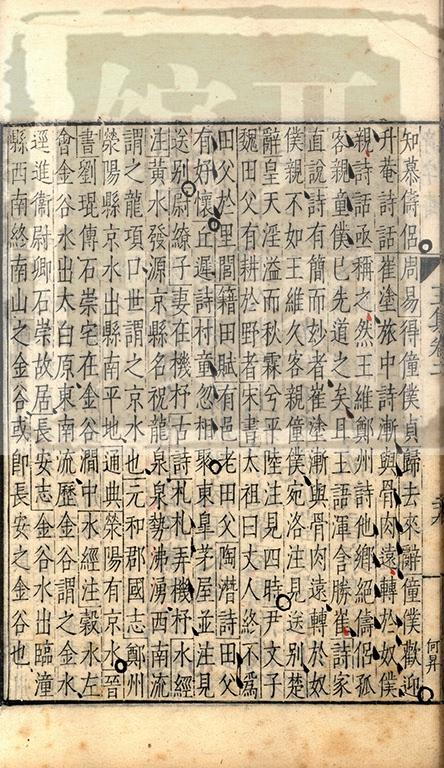 知慕儔侶周易得僮僕貞歸去來辭僮僕歡迎
升菴詩話崔塗旅中詩漸與骨肉遠轉於奴僕
親詩話亟稱之然王維鄭州詩他鄉絕儔侶孤
客親童僕已先道之矣且王語渾含勝崔詩家
直說詩有簡而妙者崔塗漸與骨肉遠轉於奴
僕親不如王維久客親僮僕宛洛注見送別楚
辭皇天淫溢而秋霖兮平陸注見四時尹文子
魏田父有耕於野者宋書太祖曰丈人終不為
田父於里閭籍田賦有邑老田父陶潛詩田父
有好懷丘遲詩村童忽相聚東皋茅屋並注見
送別尉繚子妻在機杼古詩札札弄機杼水經
注黃水發源京縣名祝龍泉泉勢沸湧西南流
謂之龍項口世謂之京水也元和郡國志鄭州
滎陽縣京水出縣南平地通典滎陽有京水晉
書劉琨傳石崇宅在金谷澗中水經注穀水左
會金谷水出大白原東南流歷金谷謂之金水
逕進衞尉卿石崇故居長安志金谷水出臨潼
縣西南終南山之金谷或卽長安之金谷也
何昇